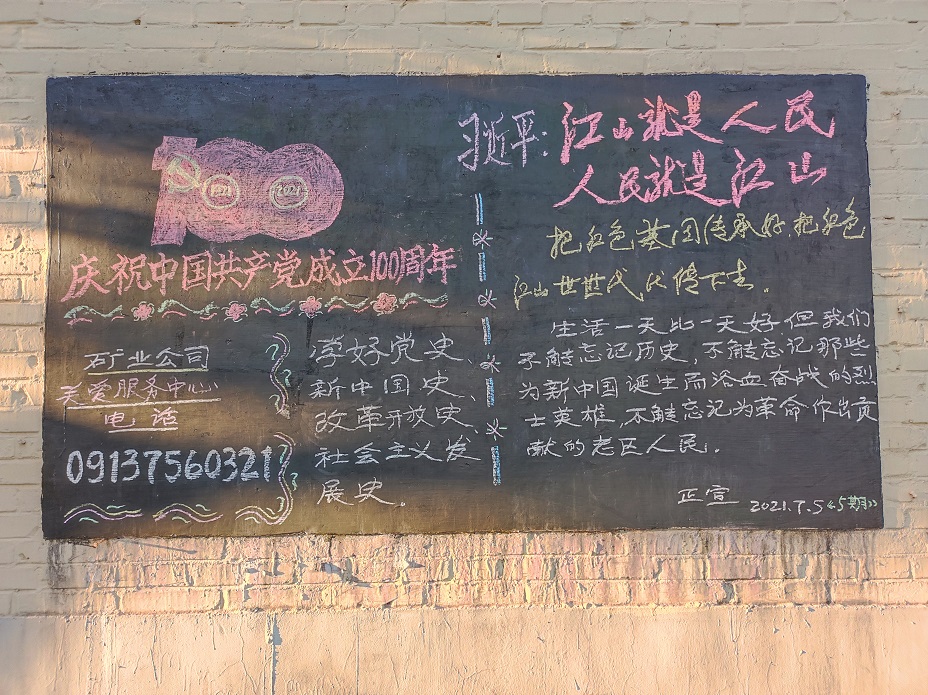 1921 2021
庆祝中国共产党成立100周年
矿业公司
关爱服务中心
电话
09137560321
学好党史、
新中国史、
改革开放史、
社会主义发
展史。
习近平:江山就是人民
人民就是江山
把红色基因传承好.把红色
江山世世代代传下去.
生活一天比一天好但我们
不能忘记历史,不能忘记那些
为新中国诞生而浴血奋战的烈
士英雄,不能忘记为革命作出贡
献的老区人民.
正宣 2021.7.5《5期》